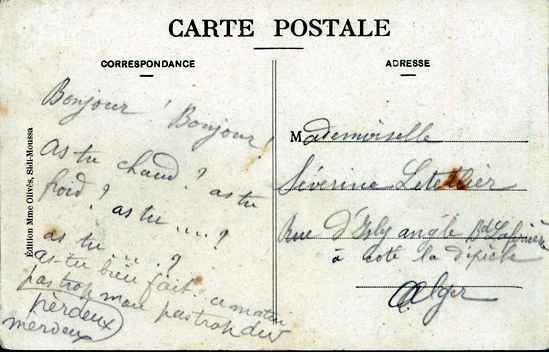 CARTE POSTALE
CORRESPONDANCE
ADRESSE
Bonjour ! Bonjour !
as tu chaud ? as tu
froid ? as tu ....?
as tu ....?
as tu bien fait ce matin
pas trop mou pas trop dur
pèrdeux
merdeux
Mademoiselle
Séverine Letellier
Rue d'Isly angle Bd Laferrière
à coté la dépêche
Alger
Édition Mme Olivès, Sidi-Moussa